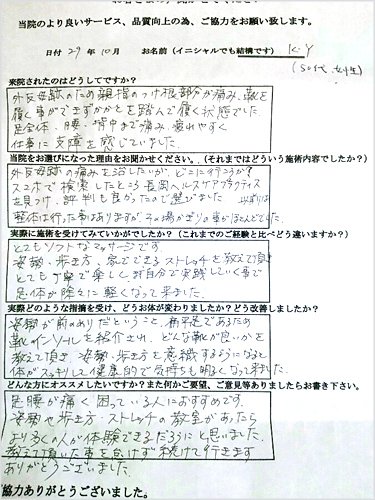 当院のより良いサービス、品質向上の為、ご協力をお願い致します。
日付 29年 10月 お名前（イニシャルでも結構です） K.Y
(50代 女性)
来院されたのはどうしてですか？
外反母趾のため親指のつけ根部分が痛み、靴を
履く事ができずかかとを踏んで履く状態でした
足全体、腰、背中まで痛み、疲れやすく
仕事に支障を感じていました。
当院をお選びになった理由をお聞かせください。（それまではどういう施術内容でしたか？）
外反母趾の痛みを治したいが、どこに行こうか？
スマホで検索したところ長岡ヘルスケアプラクティス
を見つけ、評判も良かったので選びました 以前は
整体は行った事はありますが、その場かぎりの事がほとんどでした
実際に施術を受けてみていかがでしたか？（これまでのご経験と比べどう違いますか？）
とてもソフトなマッサージです
姿勢、歩き方、家でできるストレッチを教えて頂き
とても丁寧で楽しく、また自分で実践していく事で
足・体が除々に軽くなって来ました。
実際どのような指摘を受け、どうお体が変わりましたか？どう改善しましたか？
姿勢が前のめりだということ、扁平足であるため
靴のインソールを紹介され、どんな靴が良いかを
教えて頂き、姿勢、歩き方を意識するようになると
体がスッキリして健康的で気持ちも明るくなって来ました。
どんな方にオススメしたいですか？また何かご要望、ご意見等ありましたらお書き下さい。
足腰が痛く困っている人におすすめです。
姿勢や歩き方、ストレッチの教室があったら
より多くの人が体験できるだろうにと思いました。
教えて頂いた事を怠けず続けて行きます
ありがとうございました。
協力ありがとうございました。